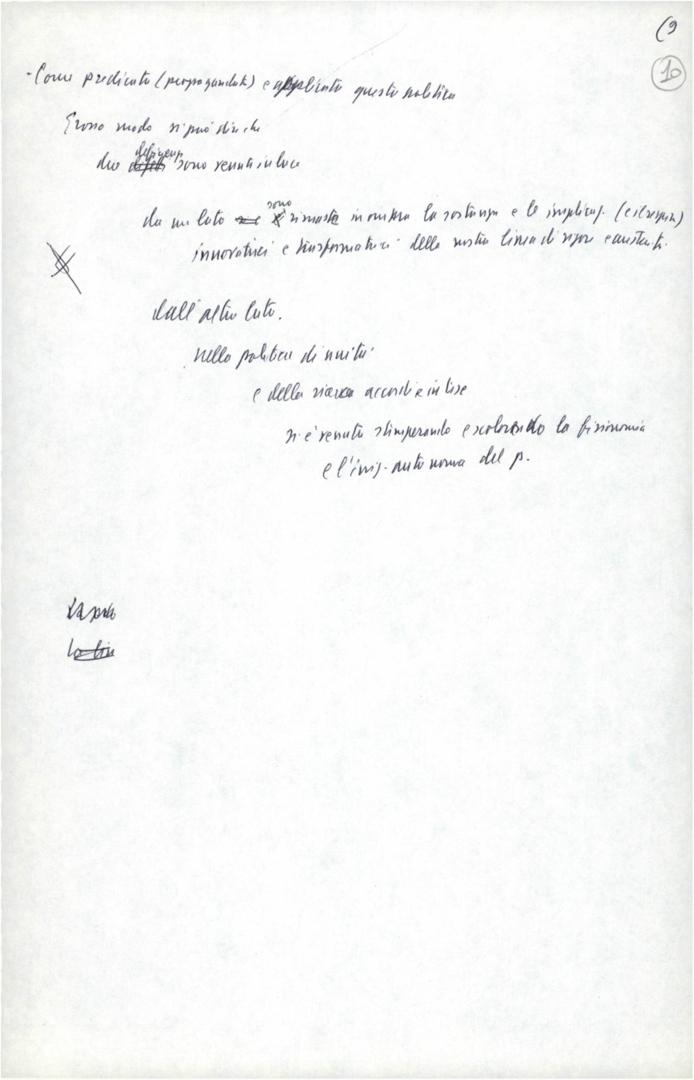 (9
10
- Come predicata (propagandata) e applicata questa politica
Grosso modo si può dire che
deficienze
due difetti sono venuti in luce
sono
da un lato rimaste in ombra la sostanza e le implicaz. (e il respiro)
innovatrici e trasformatrici della nostra linea di rigore e austerità.
dall'altro lato.
nella politica di unità
e della ricerca accordi e intese
si è venuta stemperando e scolorando la fisionomia
e l'iniz. autonoma del p.
La
La lin